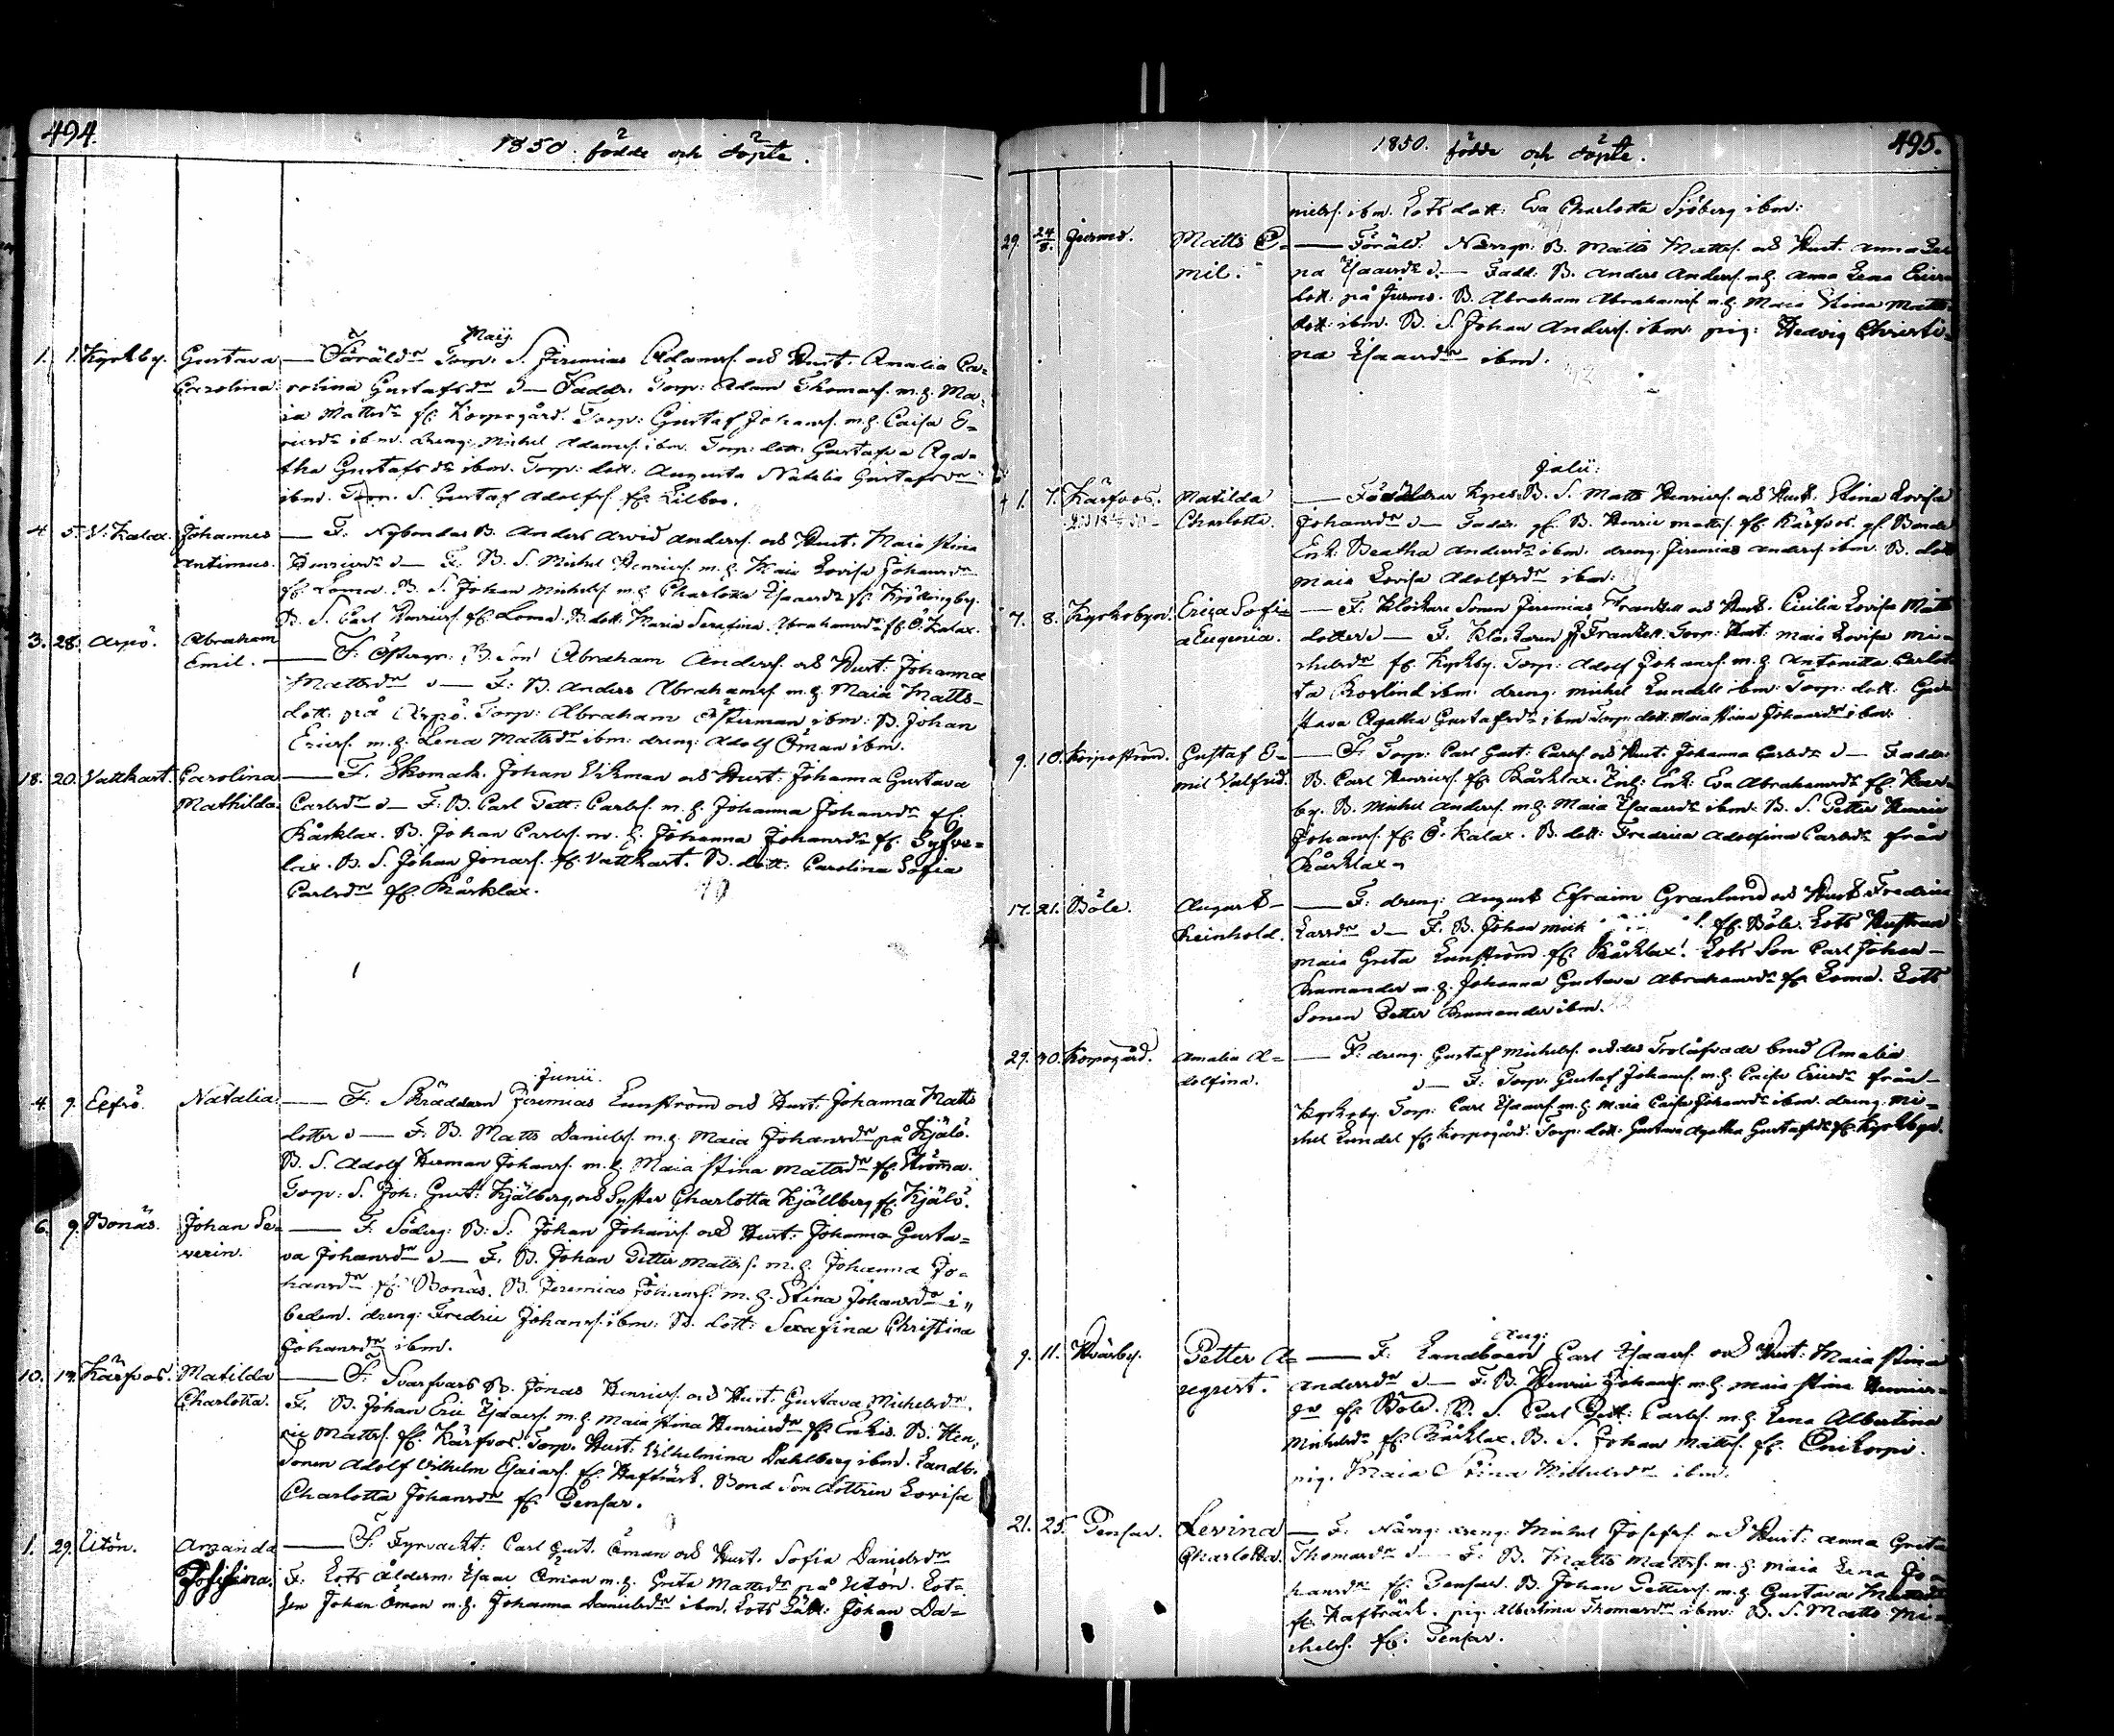 494.
1850. födde och döpte.
Maij.
1. 1. Kyrkby. Gustava — Föräldr Torp: S. Jeremias Adamss. och Hust. Amalia Ca=
Carolina. rolina Gustafsdr — Faddr. Torp: Adam Thomass. m. h. Ma=
ia Mattsdr fr. Korpogård. Torp: Gustaf Johanss. m. h. Caisa E=
ricsdr ibm. dreng: Michel Adamss. ibm. Torp: dott: Gustafva Aga=
tha Gustafsdr ibm. Torp: dott: Augusta Natalia Gustafsdr
ibm. Torp. S. Gustaf Adolfss. fr. Lilboo.
4. 5. V. Kalax. Johannes — F. Nybondas B. Anders Arvid Anderss. och Hust. Maia Stina
Antimus. Henricsdr — F. B. S. Michel Henricss. m. h. Maia Lovisa Johansdr
fr. Loma. B. S. Johan Michelss. m. h. Charlotta Isaacsdr fr. Kjödingby.
B. S. Carl Henricss. fr. Loma. B. dott: Maria Serafina Abrahamsdr fr. Ö. Kalax.
3. 28. Aspö. Abraham
Emil. — F: Östergr: B. Son Abraham Anderss. och Hust: Johanna
Mattsdr — F: B. Anders Abrahamss. m. h. Maia Matts=
dott: på Aspö. Torp: Abraham Österman ibm: B. Johan
Ericss. m. h. Lena Mattsdr ibm: dreng: Adolf Öman ibm.
18. 20. Vattkast. Carolina — F. Skomak. Johan Vikman och Hust: Johanna Gustava
Mathilda. Carlsdr — F: B. Carl Pett: Carlss. m. h. Johanna Johansdr fr.
Kårklax. B. Johan Carlss. m. h. Johanna Johansdr fr. Gyfve=
lax. B. S. Johan Jonass. fr. Vattkast. B. dott: Carolina Sofia
Carlsdr fr. Kårklax.
Junii.
4. 9. Elfsö. Natalia. — F: Skräddarn Jeremias Lunström och Hust: Johanna Matts
dotter — F. B. Matts Danielss. m. h. Maia Johansdr på Kjälö.
B. S. Adolf Herman Johanss. m. h. Maia Stina Mattsdr fr. Strömma.
Torp: S. Joh: Gust: Kjälberg, och Syster Charlotta Kjällberg fr. Kjälö.
6. 9. Bonäs. Johan Se= — F. Söderg: B: S: Johan Johanss. och Hust: Johanna Gusta=
verin. va Johansdr — F. B. Johan Petter Mattss. m. h. Johanna Jo=
hansdr fr. Bonäs. B. Jeremias Johanss. m. h. Stina Johansdr i"
bedem. dreng: Fredric Johanss. ibm: B. dott: Serafina Christina
Johansdr ibm.
10. Kärfvos. Matilda — F. Svarfvars B. Jonas Henricss. och Hust. Gustava Michelsdr.
Charlotta. F. B. Johan Eric Isaacss. m. h. Maia Stina Henricsdr fr. Enkis. B. Hen=
ric Mattss. fr. Kärfvos. Torp. Hust: Vilhelmina Dahlberg ibm. Landb.
Sonen Adolf Vilhelm Esaiass. fr. Hafträsk. Bond Son dottren Lovisa
Charlotta Johansdr fr. Pensar.
1. 29. Utön. Amanda — F. Fyrvackt: Carl Gust. Öman och Hust. Sofia Danielsdr
Josefina. F: Lots Ålderm: Isaac Öman m. h. Greta Mattsdr på Utön. Lot=
sen Johan Öman m. h. Johanna Danielsdr ibm. Lots Johan Da=
495.
1850. födde och döpte.
nielss. ibm. Lots dott: Eva Charlotta Sjöberg ibm:
29. 24/8. Jurmo. Matts E= — Föräld. Norrgr: B. Matts Mattss. och Hust. Anna Le
mil. na Isaacsdr — Fadd. B. Anders Anderss. m. h. Anna Lena Erics
dott. på Jurmo. B. Abraham Abrahamss. m. h. Maia Stina Matts
dott: ibm. B. S. Johan Anderss. ibm. pig: Hedvig Christi=
na Isaacsdr ibm.
Julii:
1. 7. Kärfvos. Matilda — Föräldrar B. S. Matts Henricss. och Hust: Stina Lovisa
Charlotta. Johansdr — Faddr. gl. B. Henric Mattss. fr. Kärfvos. gl. Bonde
Enk. Beatha Andersdr ibm. dreng. Jeremias Anderss. ibm. B. dott
Maia Lovisa Adolfsdr ibm:
7. 8. Kyrkobyn. Erica Sofi= — F. Klockare Sonen Jeremias Franzell och Hust. Cecilia Lovisa Matts
a Eugenia. dotter — F. Klockaren Franzell. Torp: Hust: Maia Lovisa Mi=
chelsdr fr. Kyrkby. Torp: Adolf Johanss. m. h. Antonetta Carlot
ta Roslind ibm: dreng. Michel Lundell ibm: Torp: dott: Gu=
stava Agatha Gustafsdr ibm Torp: dott: Maia Stina Johansdr ibm:
9. 10. Korpoström. Gustaf E= — F. Torp: Carl Gust: Carlss. och Hust: Johanna Carlsdr — Faddr
mil Valfrid. B. Carl Henricss. fr. Kårklax. Enk: Eva Abrahamsdr fr.
by. B. Michel Anderss. m. h. Maia Isaacsdr ibm: B. S. Petter Henric
Johanss. fr. Ö. Kalax. B. dott: Fredrica Adolfina Carlsdr från
Kårklax.
17. 21. Böle. August — F: dreng: August Efraim Granlund och Hust. Fredrica
Reinhold. Larsdr — F. B. Johan Mich fr. Böle. Lots Hustrun
Maia Greta Lunström fr. Kårklax. Lots Son Carl Johan
Kumander m. h. Johanna Gustava Abrahamsdr fr. Loma. Lots
Sonen Petter Kumander ibm.
29. 30. Korpogård. Amalia A= — F: dreng. Gustaf Michelss. och des Trolofvade brud Amalia
dolfina. — F: Torp: Gustaf Johanss. m. h. Caisa Ericsdr från
Kyrkoby. Torp: Carl Isaacss. m. h. Maia Caisa Johansdr ibm. dreng. Mi=
chel Lundel fr. Korpogård. Torp: dott: Gustava Agatha Gustafsdr fr. Kyrkbyn.
Aug:
9. 11. Hvärby. Petter A= — F: Landboen Carl Isaacss. och Hust: Maia Stina
ugust. Andersdr — F: B. Henric Johanss. m. h. Maia Stina Henrics=
dr fr. Böle. B. S. Carl Pett: Carlss. m. h. Lena Albertina
Michelsdr fr. Kårklax. B. S. Johan Mattss. fr. Önikorpi.
pig. Maia Stina Michelsdr ibm.
21. 25. Pensar. Levina — F. Norrg: dreng: Michel Josefss. och Hust: Anna Greta
Charlotta. Thomasdr — F: B. Matts Mattss. m. h. Maia Lena Jo=
hansdr fr. Pensar. B. Johan Petterss. m. h. Gustava Mattsdr
fr. Hafträsk. pig. Albertina Thomasdr ibm: B. S. Matts Mi=
chelss. fr. Pensar.